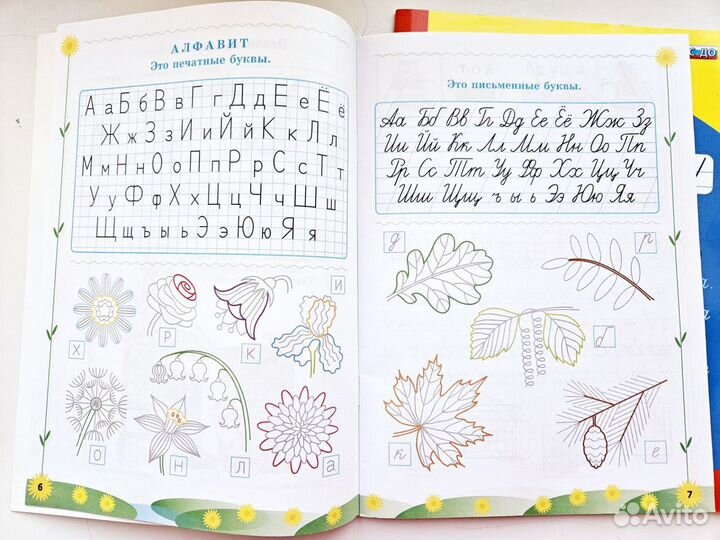 АЛФАВИТ
Это печатные буквы.
АаБбВвГгДдЕеЁё
ЖжЗзИиЙйКкЛл
МмНнОоПпРрСсТт
УуФфХхЦцЧчШш
ЩщъыьЭэЮюЯя
и
х р к
о н л а
6
Это письменные буквы.
Аа Бб Вв Гг Дд Ее Ёё Жж Зз
Ии Йй Кк Лл Мм Нн Оо Пп
Рр Сс Тт Уу Фф Хх Цц Чч
Шш Щщ ъ ы ь Ээ Юю Яя
д р
б
к е
7
ДО
Avito